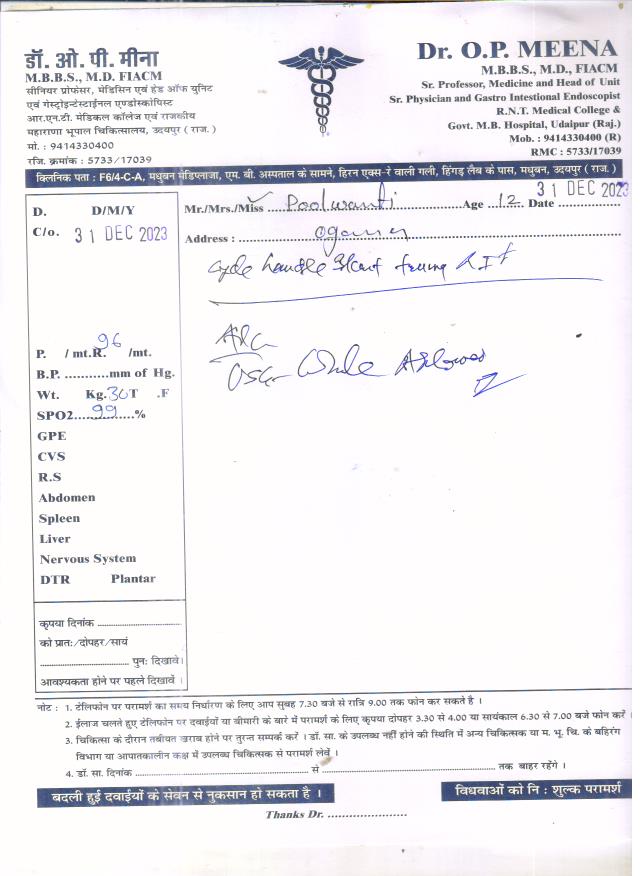 डॉ. ओ. पी. मीना
M.B.B.S., M.D. FIACM
सीनियर प्रोफेसर, मेडिसिन एवं हेड ऑफ युनिट
एवं गेस्ट्रोइन्टेस्टाईनल एण्डोस्कोपिस्ट
आर.एन.टी. मेडिकल कॉलेज एवं राजकीय
महाराणा भूपाल चिकित्सालय, उदयपुर ( राज. )
मो. : 9414330400
रजि. क्रमांक : 5733/17039
Dr. O.P. MEENA
M.B.B.S., M.D., FIACM
Sr. Professor, Medicine and Head of Unit
Sr. Physician and Gastro Intestional Endoscopist
R.N.T. Medical College &
Govt. M.B. Hospital, Udaipur (Raj.)
Mob. : 9414330400 (R)
RMC : 5733/17039
क्लिनिक पता : F6/4-C-A, मधुबन मेडिप्लाजा, एम. बी. अस्पताल के सामने, हिरन एक्स-रे वाली गली, हिंगड़ लैब के पास, मधुबन, उदयपुर ( राज. )
D. D/M/Y
C/o. 31 DEC 2023
Mr./Mrs./Miss Poolwanti Age 12 Date 31 DEC 2023
Address :
Cycle handle
P. / mt.R. 96 /mt.
B.P. ............mm of Hg.
Wt. Kg. 30 T .F
SPO2 99 %
GPE
CVS
R.S
Abdomen
Spleen
Liver
Nervous System
DTR Plantar
USG Whole Abdomen
कृपया दिनांक
को प्रातः/दोपहर/सायं
पुनः दिखावें।
आवश्यकता होने पर पहले दिखावें ।
नोट : 1. टेलिफोन पर परामर्श का समय निर्धारण के लिए आप सुबह 7.30 बजे से रात्रि 9.00 तक फोन कर सकते है ।
2. ईलाज चलते हुए टेलिफोन पर दवाईयों या बीमारी के बारे में परामर्श के लिए कृपया दोपहर 3.30 से 4.00 या सायंकाल 6.30 से 7.00 बजे फोन करें ।
3. चिकित्सा के दौरान तबीयत खराब होने पर तुरन्त सम्पर्क करें । डॉ. सा. के उपलब्ध नहीं होने की स्थिति में अन्य चिकित्सक या म. भू. चि. के बहिरंग
विभाग या आपातकालीन कक्ष में उपलब्ध चिकित्सक से परामर्श लेवें ।
4. डॉ. सा. दिनांक ........ से ........ तक बाहर रहेंगे ।
बदली हुई दवाईयों के सेवन से नुकसान हो सकता है ।
विधवाओं को नि : शुल्क परामर्श
Thanks Dr. ......................